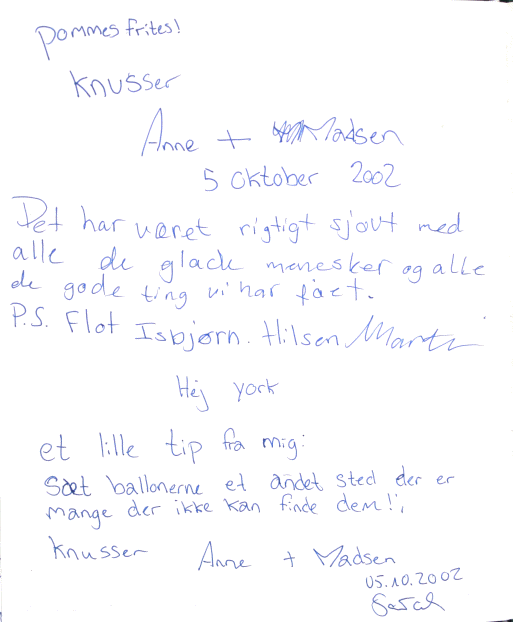 Pommes frites!
Knusser
Anne + Madsen
5 Oktober 2002
Det har været rigtigt sjovt med
alle de glade menesker og alle
de gode ting vi har fået.
P.S. Flot Isbjørn. Hilsen Martin
Hej york
et lille tip fra mig:
Sæt ballonerne et andet sted der er
mange der ikke kan finde dem!
Knusser Anne + Madsen
05.10.2002
Sarah